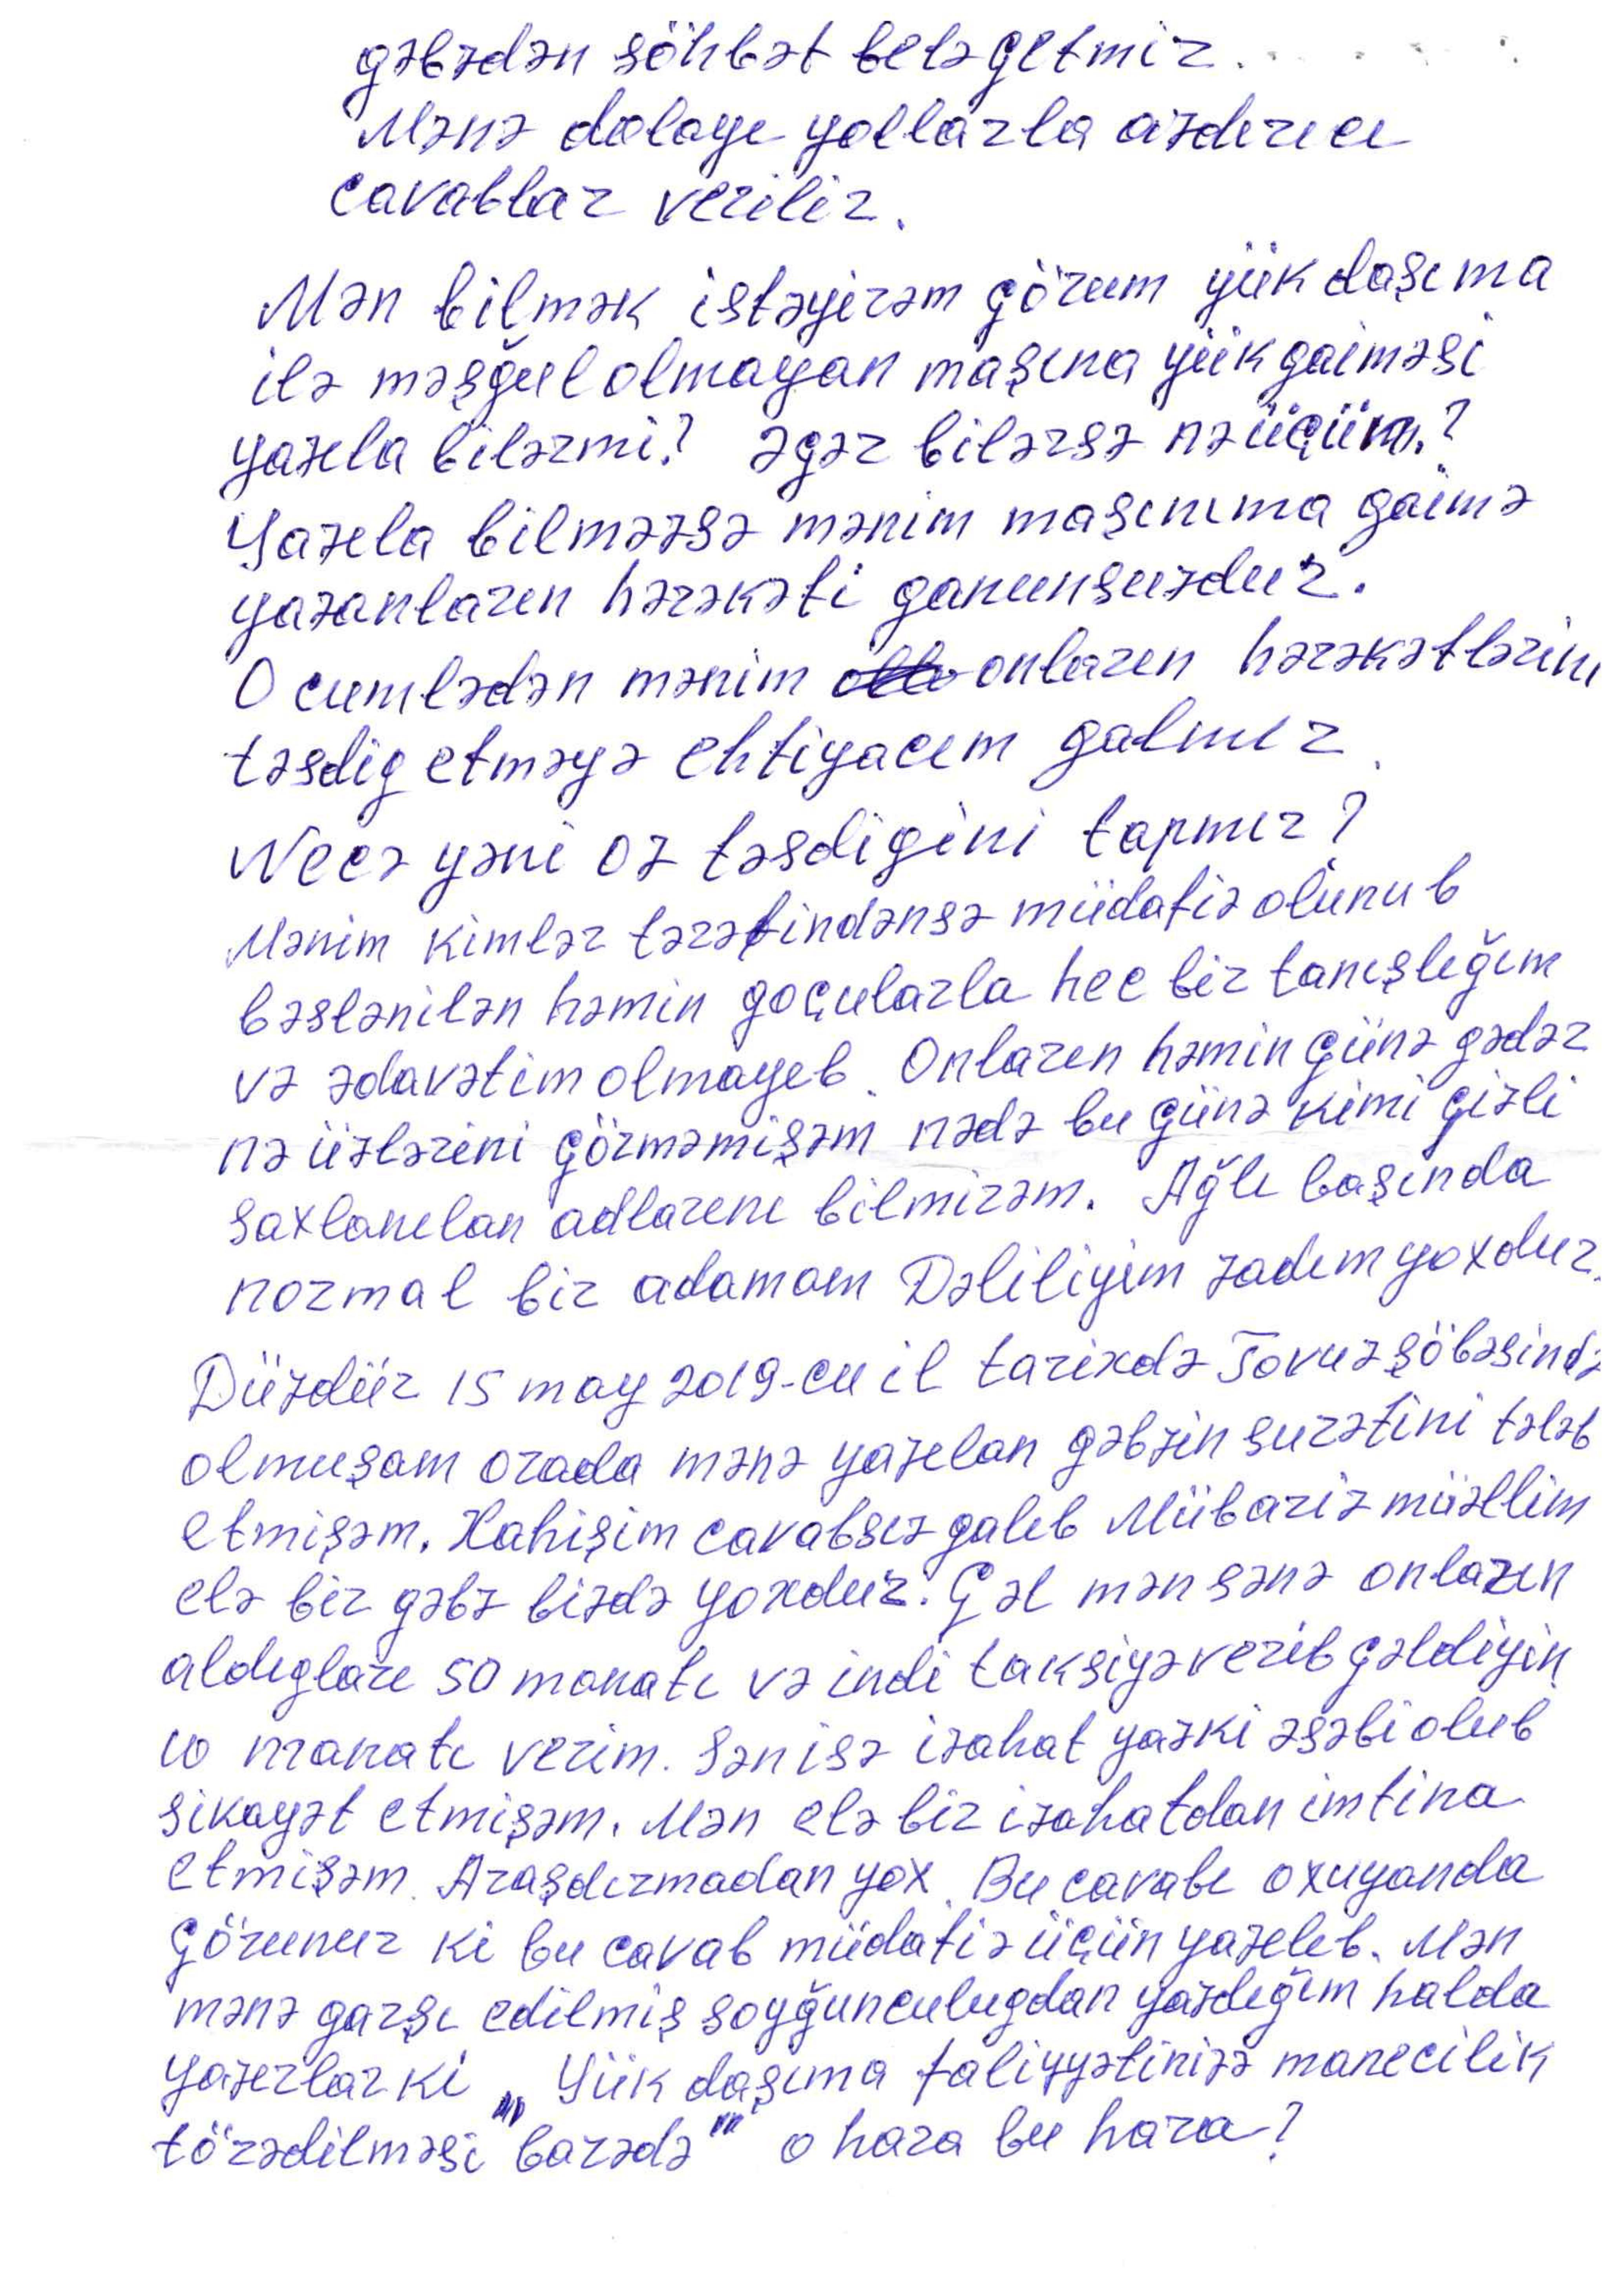 gəbzdən söhbət belə getmir.
Mənə dolayı yollarla azdırıcı
cavablar verilir.
Mən bilmək istəyirəm görum yük daşıma
ilə məşğul olmayan maşına yük gaiməsi
yazıla bilərmi? Əgər bilərsə nə üçün?
Yazıla bilməzsə mənim maşınıma gaimə
yazanların hərəkəti ganunsuzdur.
O cumlədən mənim onların hərəkətlərini
təsdig etməyə ehtiyacım galmır.
Necə yəni oz təsdigini tapmır?
Mənim kimlər tərəfindənsə müdafiə olunub
bəslənilən həmin goçularla hec bir tanışlığım
və ədavətim olmayıb. Onların həmin günə gədər
nə üzlərini görməmişəm nədə bu günə kimi gizli
saxlanılan adlarını bilmirəm. Ağlı başında
normal bir adamam Dəliliyim zadım yoxdur.
Düzdür 15 may 2019-cu il tarixdə Tovuz şöbəsində
olmuşam orada mənə yazılan gəbzin surətini tələb
etmişəm. Xahişim cavabsız galıb Mübariz müəllim
elə bir gəbz bizdə yoxdur. Gəl mən sənə onların
aldıgları 50 manatı və indi taksiyə verib gəldiyin
10 manatı verim. Sən isə izahat yazki əsəbi olub
sikayət etmişəm. Mən elə bir izahatdan imtina
etmişəm. Araşdırmadan yox. Bu cavabı oxuyanda
görunur ki bu cavab müdafiə üçün yazılıb. Mən
mənə garşı edilmiş soyğunculugdan yazdığım halda
yazırlar ki „Yük daşıma faliyyətinizə manecilik
törədilməsi" barədə"" o hara bu hara?